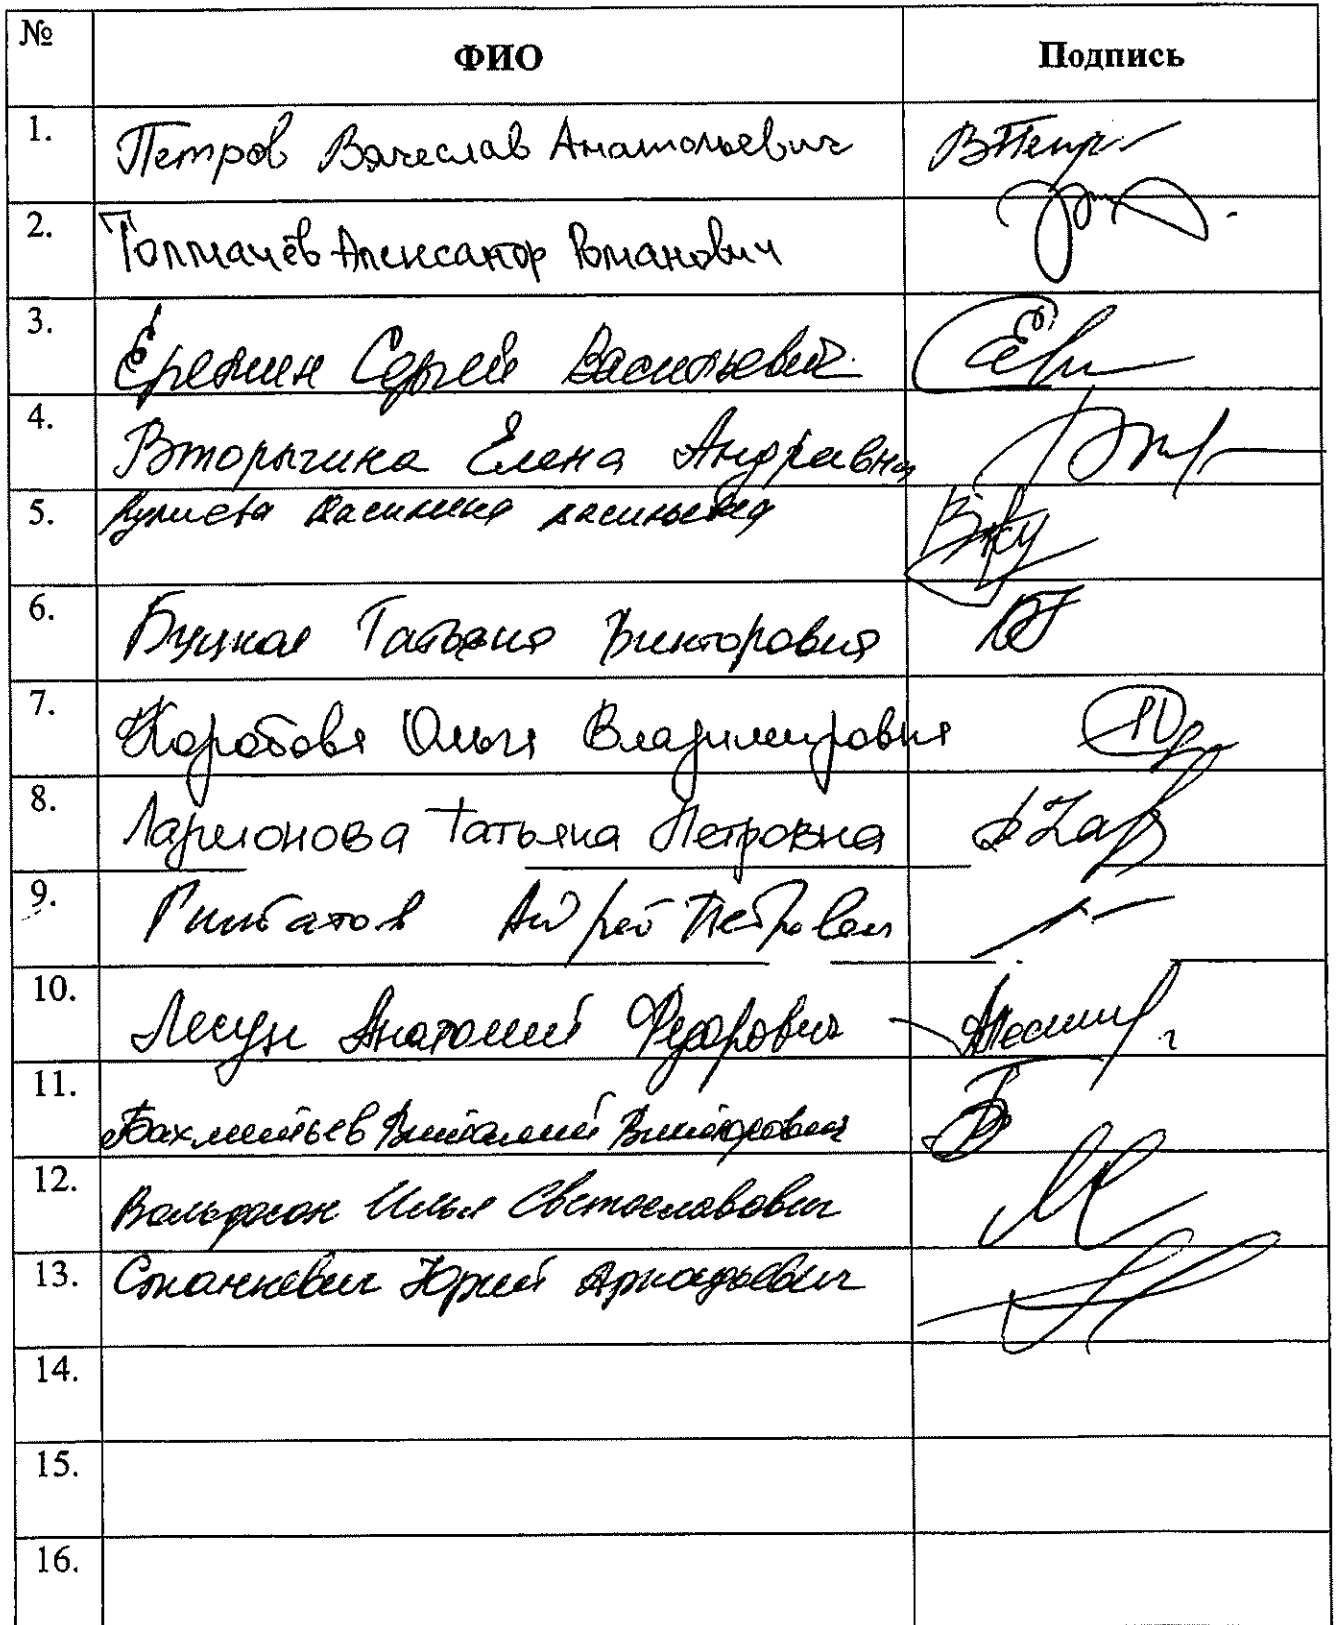 № ФИО Подпись
1. Петров Вячеслав Анатольевич
2. Толмачёв Александр Романович
3. Еремин Сергей Васильевич
4. Вторыгина Елена Андреевна
5.
6. Буцкая Татьяна Викторовна
7. Коробова Ольга Владимировна
8. Ларионова Татьяна Петровна
9. Андрей Петрович
10. Лесун Анатолий Федорович
11. Бахметьев Виталий Викторович
12. Вольфсон Илья Светославович
13. Станкевич Юрий Аркадьевич
14.
15.
16.